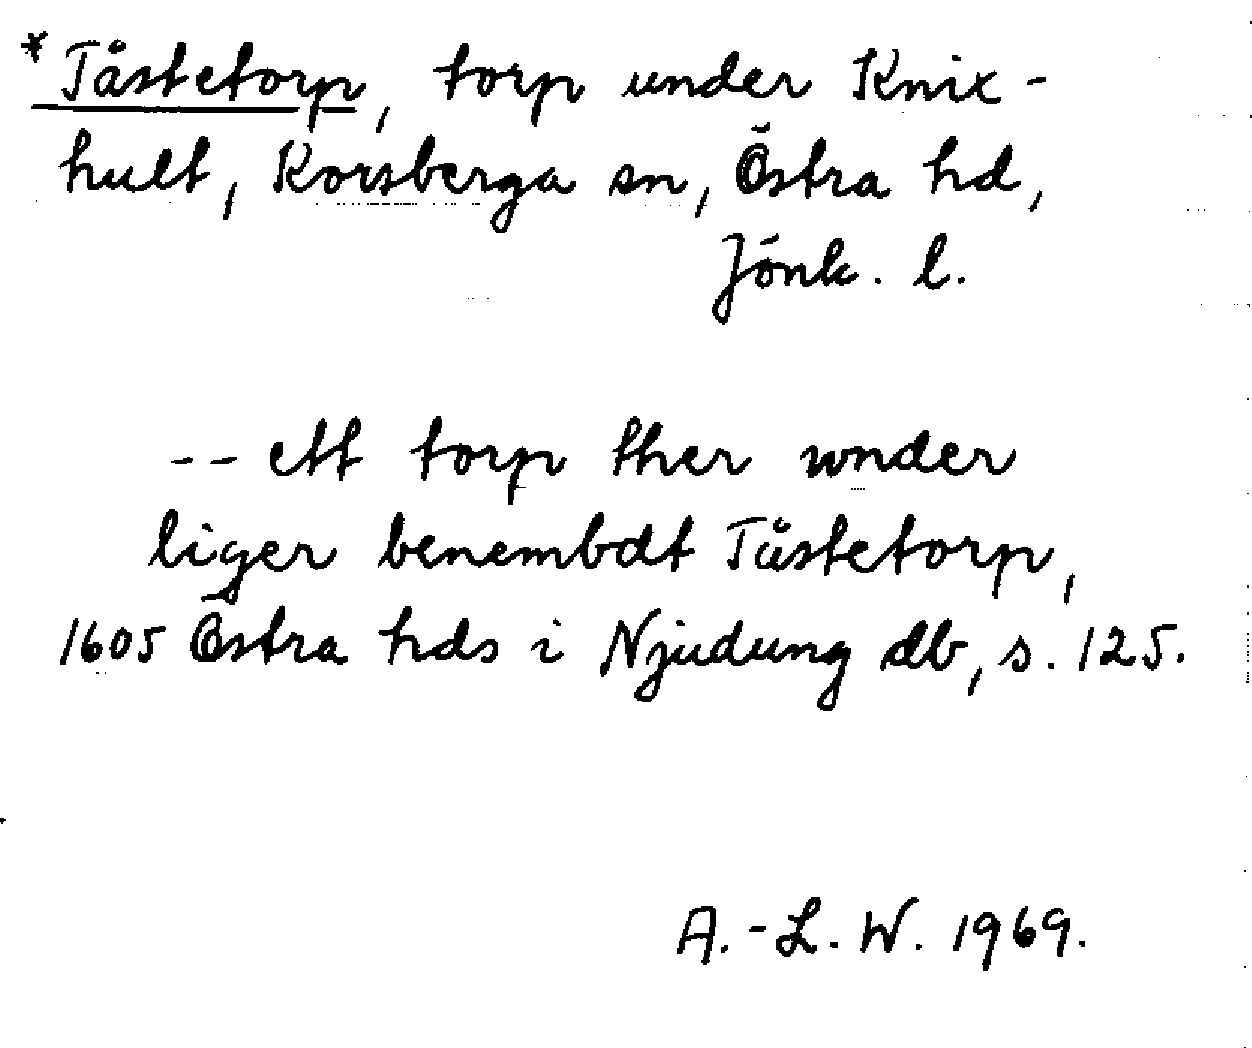 *Tåstetorp, torp under Knix-
hult, Korsberga sn, Östra hd,
Jönk. l.
-- ett torp ther wnder
liger benembdt Tåstetorp,
1605 Östra hds i Njudung db, s. 125.
A.-L. W. 1969.